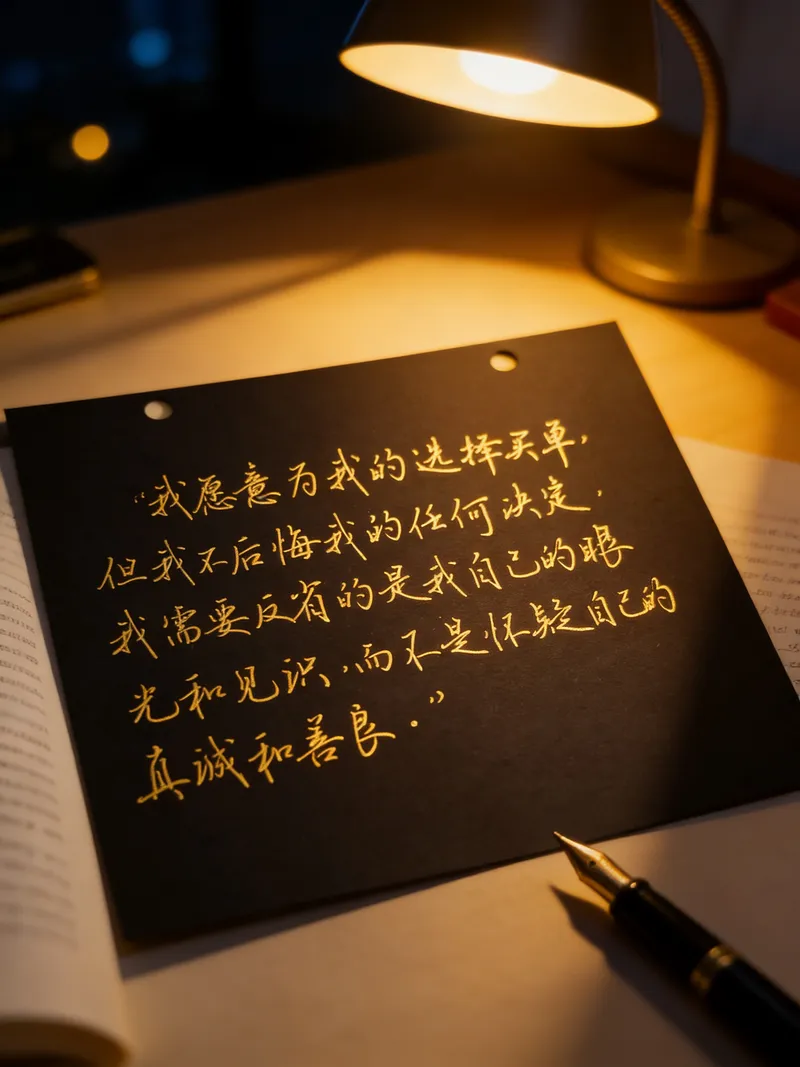 “我愿意为我的选择买单，
但我不后悔我的任何决定，
我需要反省的是我自己的眼
光和见识，而不是怀疑自己的
真诚和善良。”